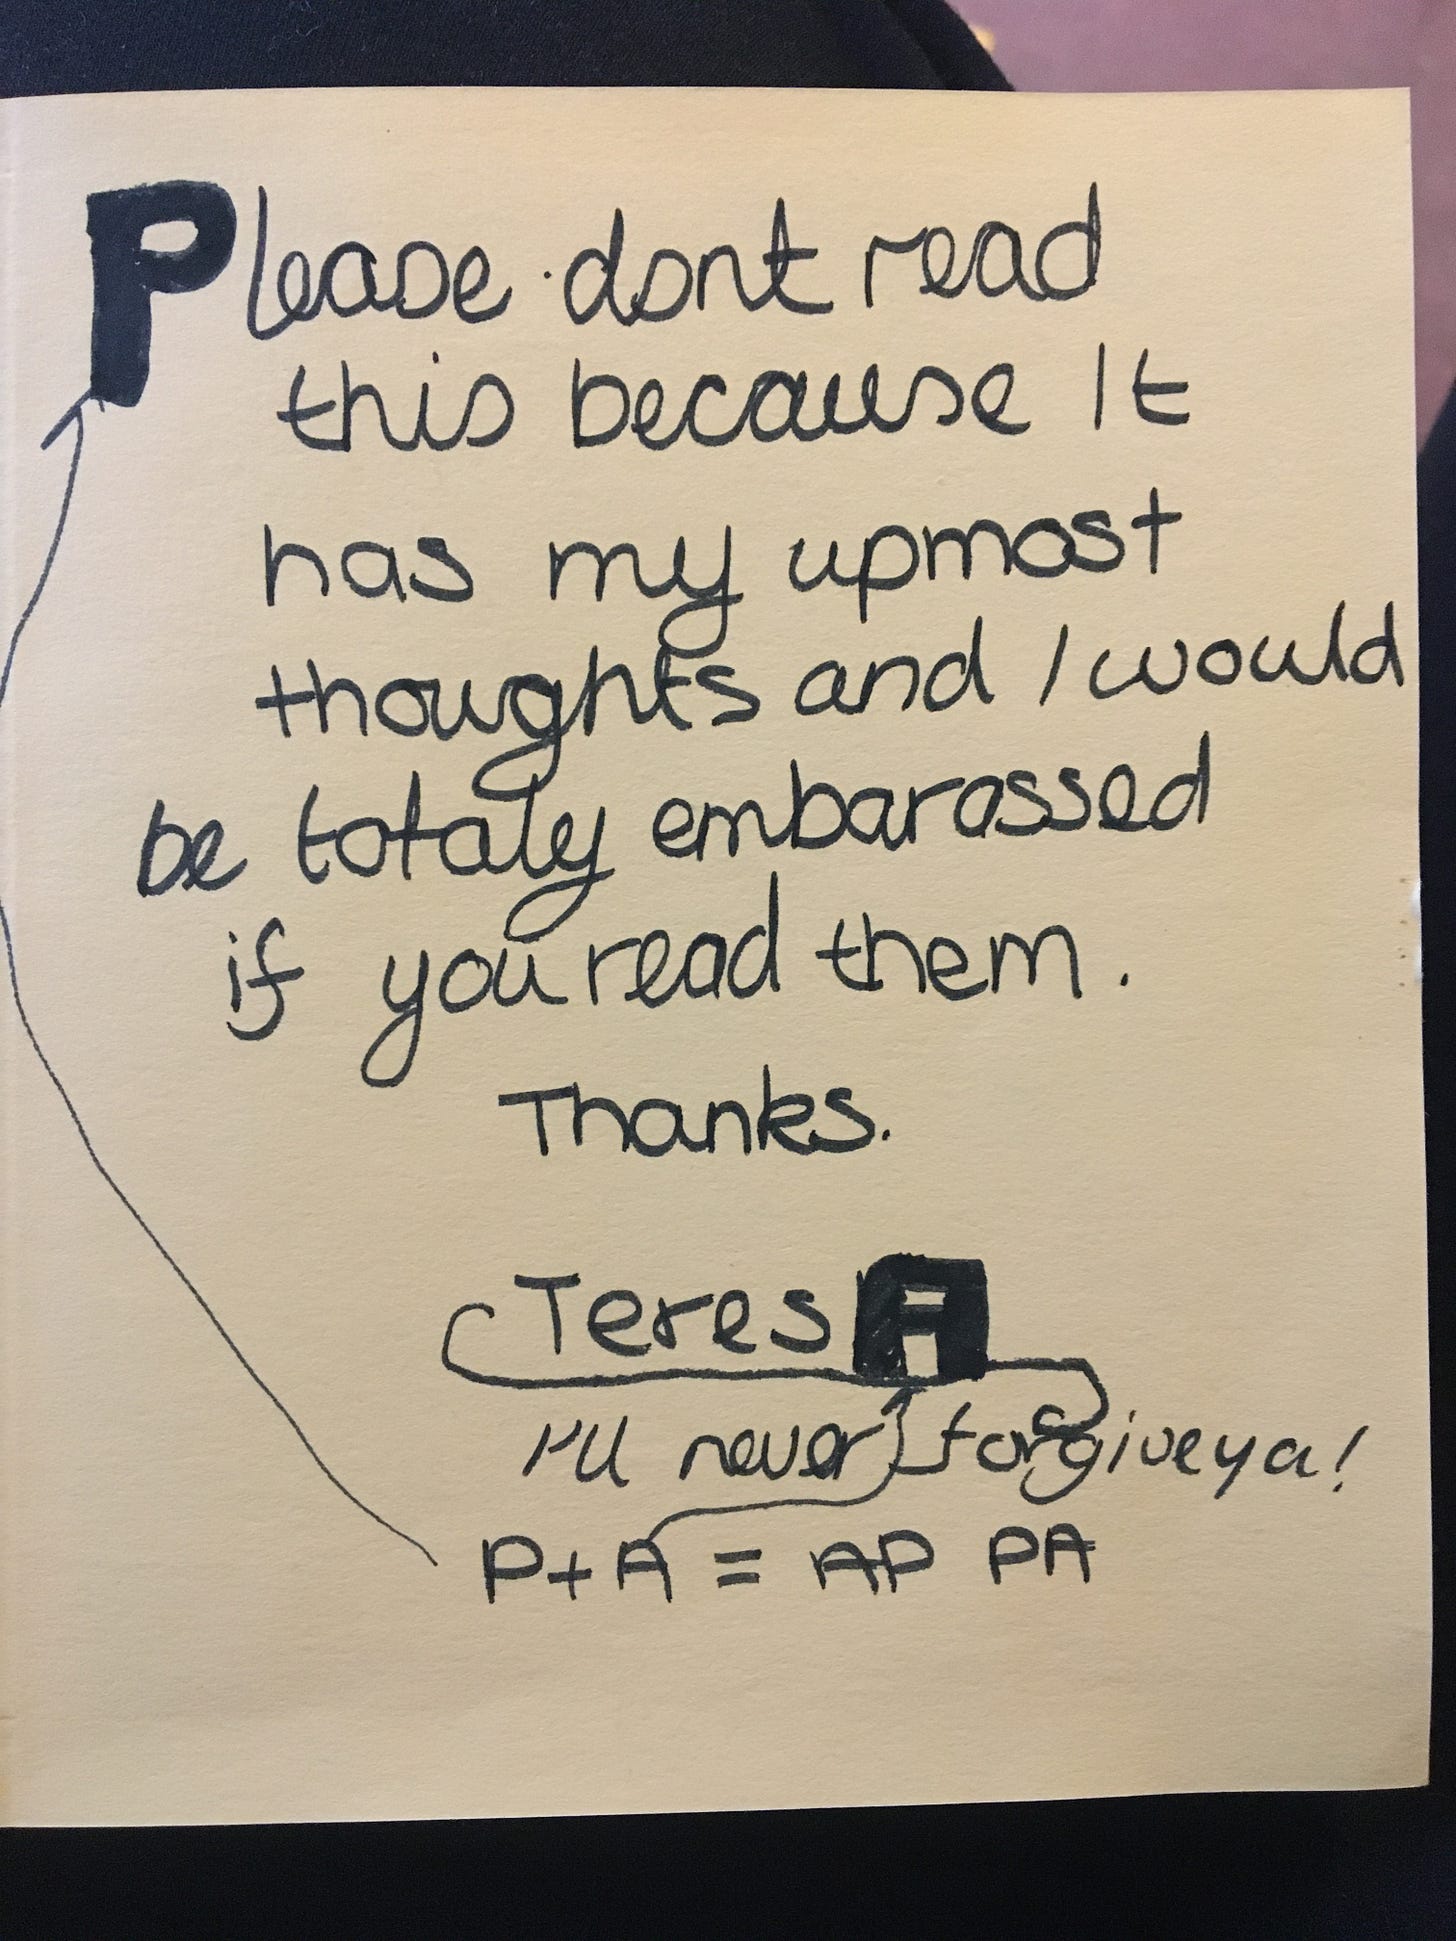 Please dont read
this because It
has my upmost
thoughts and I would
be totaly embarassed
if you read them.
Thanks.
TeresA
I'll never forgive ya!
P+A = AP PA